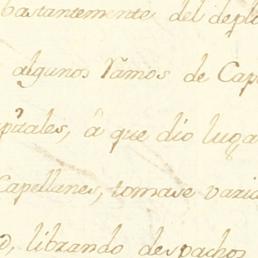 bastantemente del deplo
algunos Rãmos de Cap
pitales, â que dio luga
Capellanes, tomase vario
, librando despachos